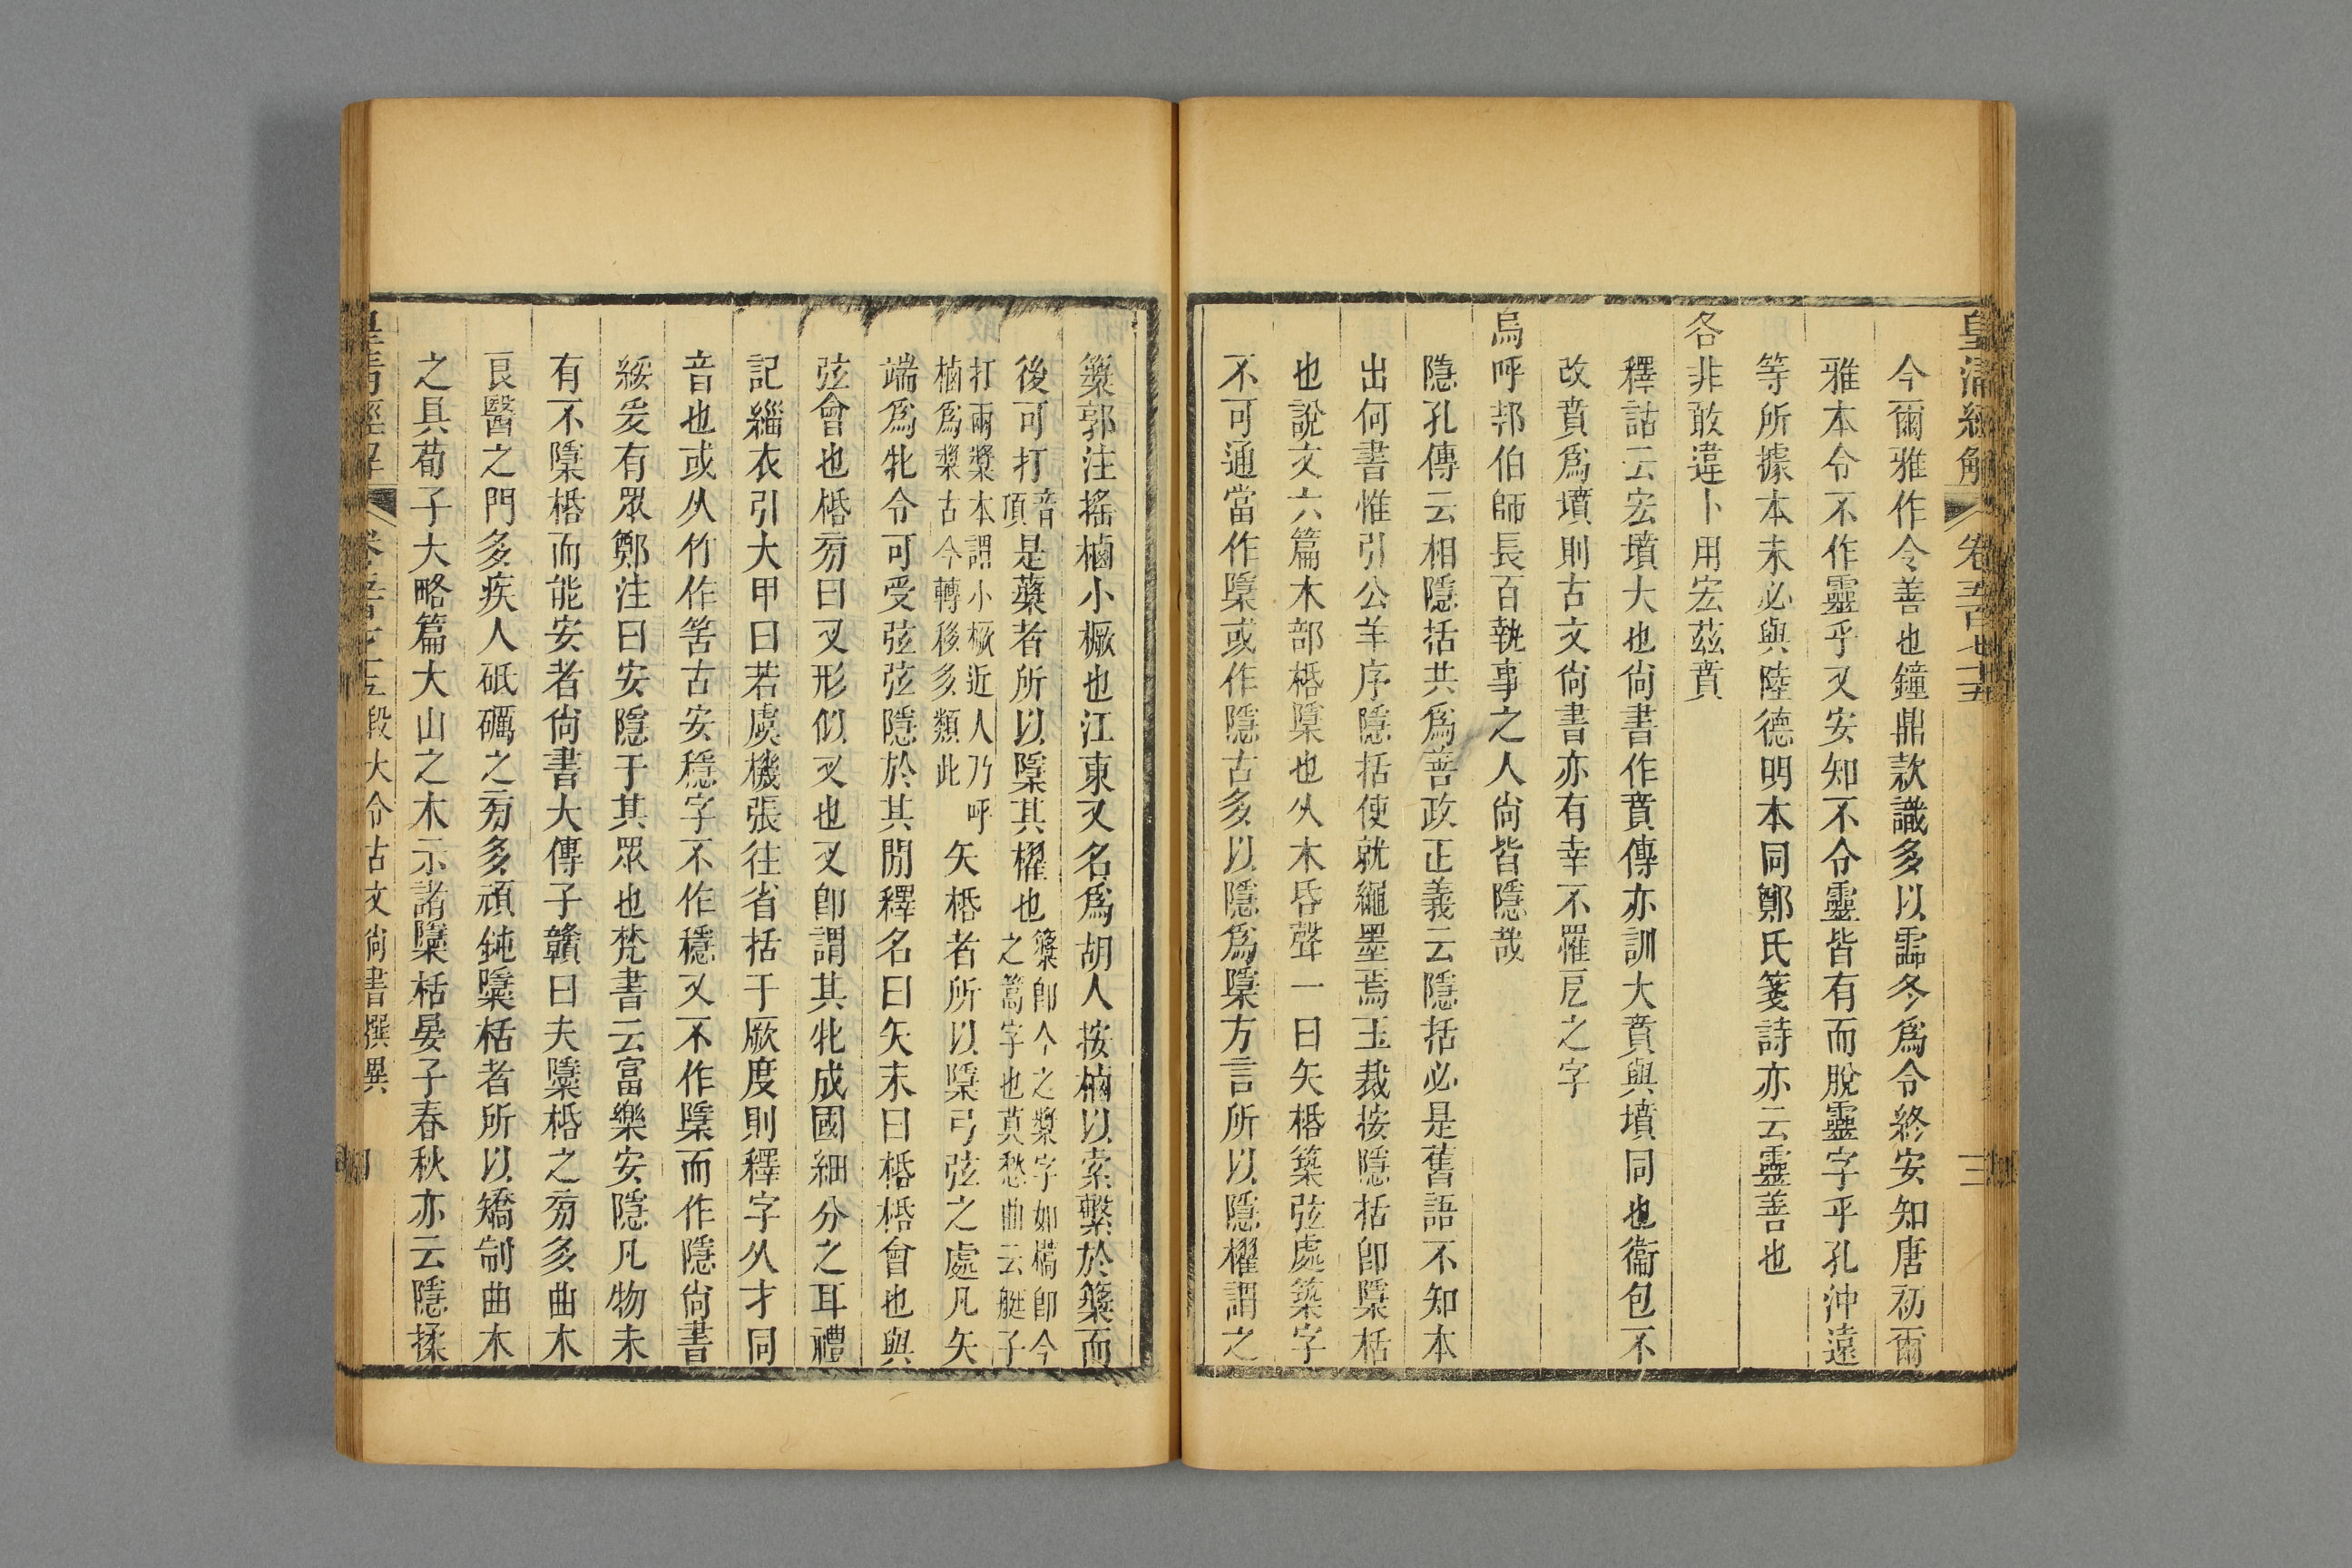 皇清經解 卷五百七十五 三
今爾雅作令善也鐘鼎款識多以霝冬爲令終安知唐初爾
雅本令不作靈乎又安知不令靈皆有而脫靈字乎孔沖遠
等所據本未必與陸德明本同鄭氏箋詩亦云靈善也
各非敢違卜用宏茲賁
釋詁云宏墳大也尙書作賁傳亦訓大賁與墳同也衞包不
改賁爲墳則古文尙書亦有幸不罹厄之字
烏呼邦伯師長百執事之人尙皆隱哉
隱孔傳云相隱括共爲善政正義云隱括必是舊語不知本
出何書惟引公羊序隱括使就繩墨焉玉裁按隱括卽檃桰
也說文六篇木部桰檃也从木昏聲一曰矢桰築弦處築字
不可通當作檃或作隱古多以隱爲檃方言所以隱櫂謂之
䉃郭注搖樐小橛也江東又名爲胡人按樐以索繫於䉃而
後可打音頂是䉃者所以檃其櫂也䉃卽今之槳字如檇卽今
之篙字也莫愁曲云艇子
打兩槳本謂小橛近人乃呼
樐爲槳古今轉移多類此矢桰者所以檃弓弦之處凡矢
端爲牝令可受弦弦隱於其閒釋名曰矢末曰桰桰會也與
弦會也桰㫄曰叉形似叉也叉卽謂其牝成國細分之耳禮
記緇衣引大甲曰若虞機張往省括于厥度則釋字从才同
音也或从竹作筈古安穩字不作穩又不作檃而作隱尙書
綏爰有眾鄭注曰安隱于其眾也梵書云富樂安隱凡物未
有不檃桰而能安者尙書大傳子贛曰夫檃桰之㫄多曲木
良醫之門多疾人砥礪之㫄多頑鈍檃桰者所以矯制曲木
之具荀子大略篇大山之木示諸檃桰晏子春秋亦云隱揉
皇清經解 卷五百七十五 段大令古文尙書撰異 四